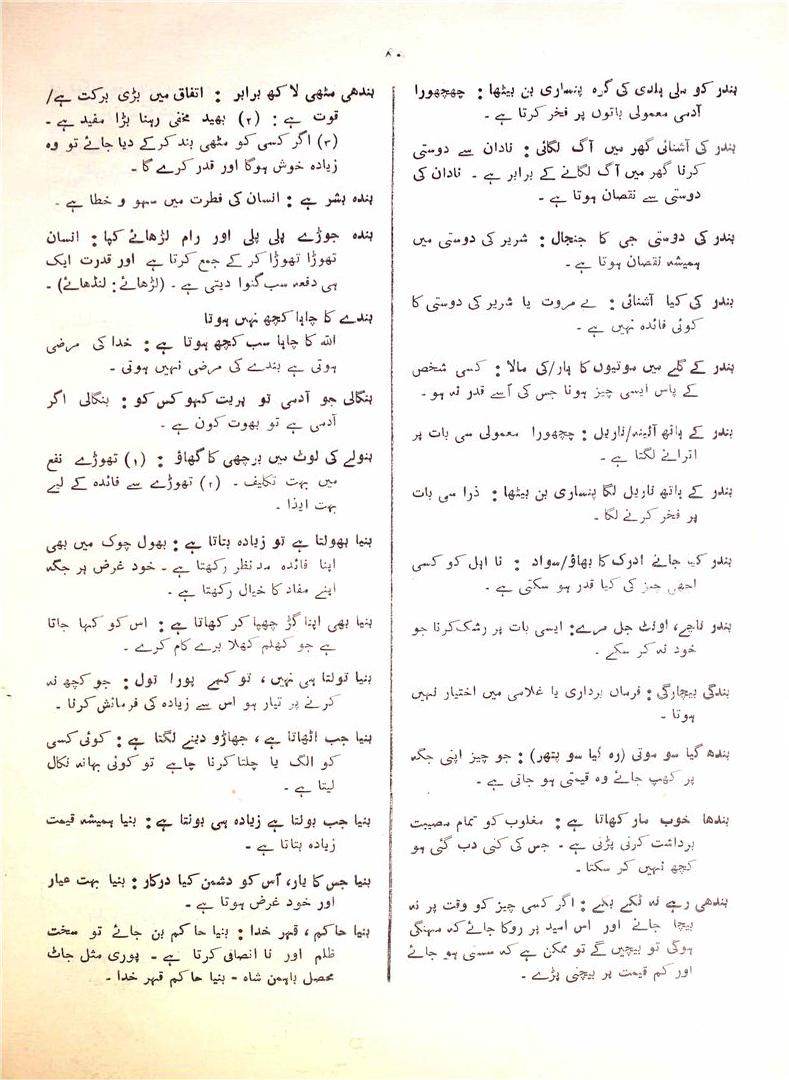 ۸۰
بندر کو ملی ہلدی کی گرہ پنساری بن بیٹھا : چھچھورا
آدمی معمولی باتوں پر فخر کرتا ہے ۔
بندر کی آشنائی گھر میں آگ لگائی : نادان سے دوستی
کرنا گھر میں آگ لگانے کے برابر ہے ۔ نادان کی
دوستی سے نقصان ہوتا ہے ۔
بندر کی دوستی جی کا جنجال : شریر کی دوستی میں
ہمیشہ نقصان ہوتا ہے ۔
بندر کی کیا آشنائی : بے مروت یا شریر کی دوستی کا
کوئی فائدہ نہیں ہے ۔
بندر کے گلے میں موتیوں کا ہار/کی مالا : کسی شخص
کے پاس ایسی چیز ہونا جس کی اُسے قدر نہ ہو ۔
بندر کے ہاتھ آئینہ/ناریل : چھچھورا معمولی سی بات پر
اترانے لگتا ہے ۔
بندر کے ہاتھ ناریل لگا پنساری بن بیٹھا : ذرا سی بات
پر فخر کرنے لگا ۔
بندر کیا جانے ادرک کا بھاؤ/سواد : نا اہل کو کسی
اچھی چیز کی کیا قدر ہو سکتی ہے ۔
بندر ناچے، اونٹ جل مرے : ایسی بات پر رشک کرنا جو
خود نہ کر سکے ۔
بندگی بیچارگی : فرماں برداری یا غلامی میں اختیار نہیں
ہوتا ۔
بندھ گیا سو موتی (رہ گیا سو پتھر) : جو چیز اپنی جگہ
پر کھپ جائے وہ قیمتی ہو جاتی ہے ۔
بندھا خوب مار کھاتا ہے : مغلوب کو تمام مصیبت
برداشت کرنی پڑتی ہے ۔ جس کی کنی دب گئی ہو
کچھ نہیں کر سکتا ۔
بندھی رہے نہ ٹکے بکے : اگر کسی چیز کو وقت پر نہ
بیچا جائے اور اس امید پر روکا جائے کہ مہنگی
ہوگی تو بیچیں گے تو ممکن ہے کہ سستی ہو جائے
اور کم قیمت پر بیچنی پڑے ۔
بندھی مٹھی لاکھ برابر : اتفاق میں بڑی برکت ہے/
قوت ہے : (۲) بھید مخفی رہنا بڑا مفید ہے ۔
(۳) اگر کسی کو مٹھی بند کر کے دیا جائے تو وہ
زیادہ خوش ہوگا اور قدر کرے گا ۔
بندہ بشر ہے : انسان کی فطرت میں سہو و خطا ہے ۔
بندہ جوڑے پلی پلی اور رام لڑھائے کپا : انسان
تھوڑا تھوڑا کر کے جمع کرتا ہے اور قدرت ایک
ہی دفعہ سب گنوا دیتی ہے ۔ (لڑھائے : لنڈھائے) ۔
بندے کا چاہا کچھ نہیں ہوتا
اللہ کا چاہا سب کچھ ہوتا ہے : خدا کی مرضی
ہوتی ہے بندے کی مرضی نہیں ہوتی ۔
بنگالی جو آدمی تو پریت کہو کس کو : بنگالی اگر
آدمی ہے تو بھوت کون ہے ۔
بنولے کی لوٹ میں برچھی کا گھاؤ : (۱) تھوڑے نفع
میں بہت تکلیف ۔ (۲) تھوڑے سے فائدہ کے لیے
بہت ایذا ۔
بنیا بھولتا ہے تو زیادہ بتاتا ہے : بھول چوک میں بھی
اپنا فائدہ مدنظر رکھتا ہے ۔ خود غرض ہر جگہ
اپنے مفاد کا خیال رکھتا ہے ۔
بنیا بھی اپنا گڑ چھپا کر کھاتا ہے : اس کو کہا جاتا
ہے جو کھلم کھلا برے کام کرے ۔
بنیا تولتا ہی نہیں ، تو کہے پورا تول : جو کچھ نہ
کرنے پر تیار ہو اس سے زیادہ کی فرمائش کرنا ۔
بنیا جب اٹھاتا ہے ، جھاڑو دینے لگتا ہے : کوئی کسی
کو الگ یا چلتا کرنا چاہے تو کوئی بہانہ نکال
لیتا ہے ۔
بنیا جب بولتا ہے زیادہ ہی بولتا ہے : بنیا ہمیشہ قیمت
زیادہ بتاتا ہے ۔
بنیا جس کا یار، اُس کو دشمن کیا درکار : بنیا بہت عیار
اور خود غرض ہوتا ہے ۔
بنیا حاکم ، قہر خدا : بنیا حاکم بن جائے تو سخت
ظلم اور نا انصافی کرتا ہے ۔ پوری مثل جاٹ
محصل باہمن شاہ ۔ بنیا حاکم قہر خدا ۔